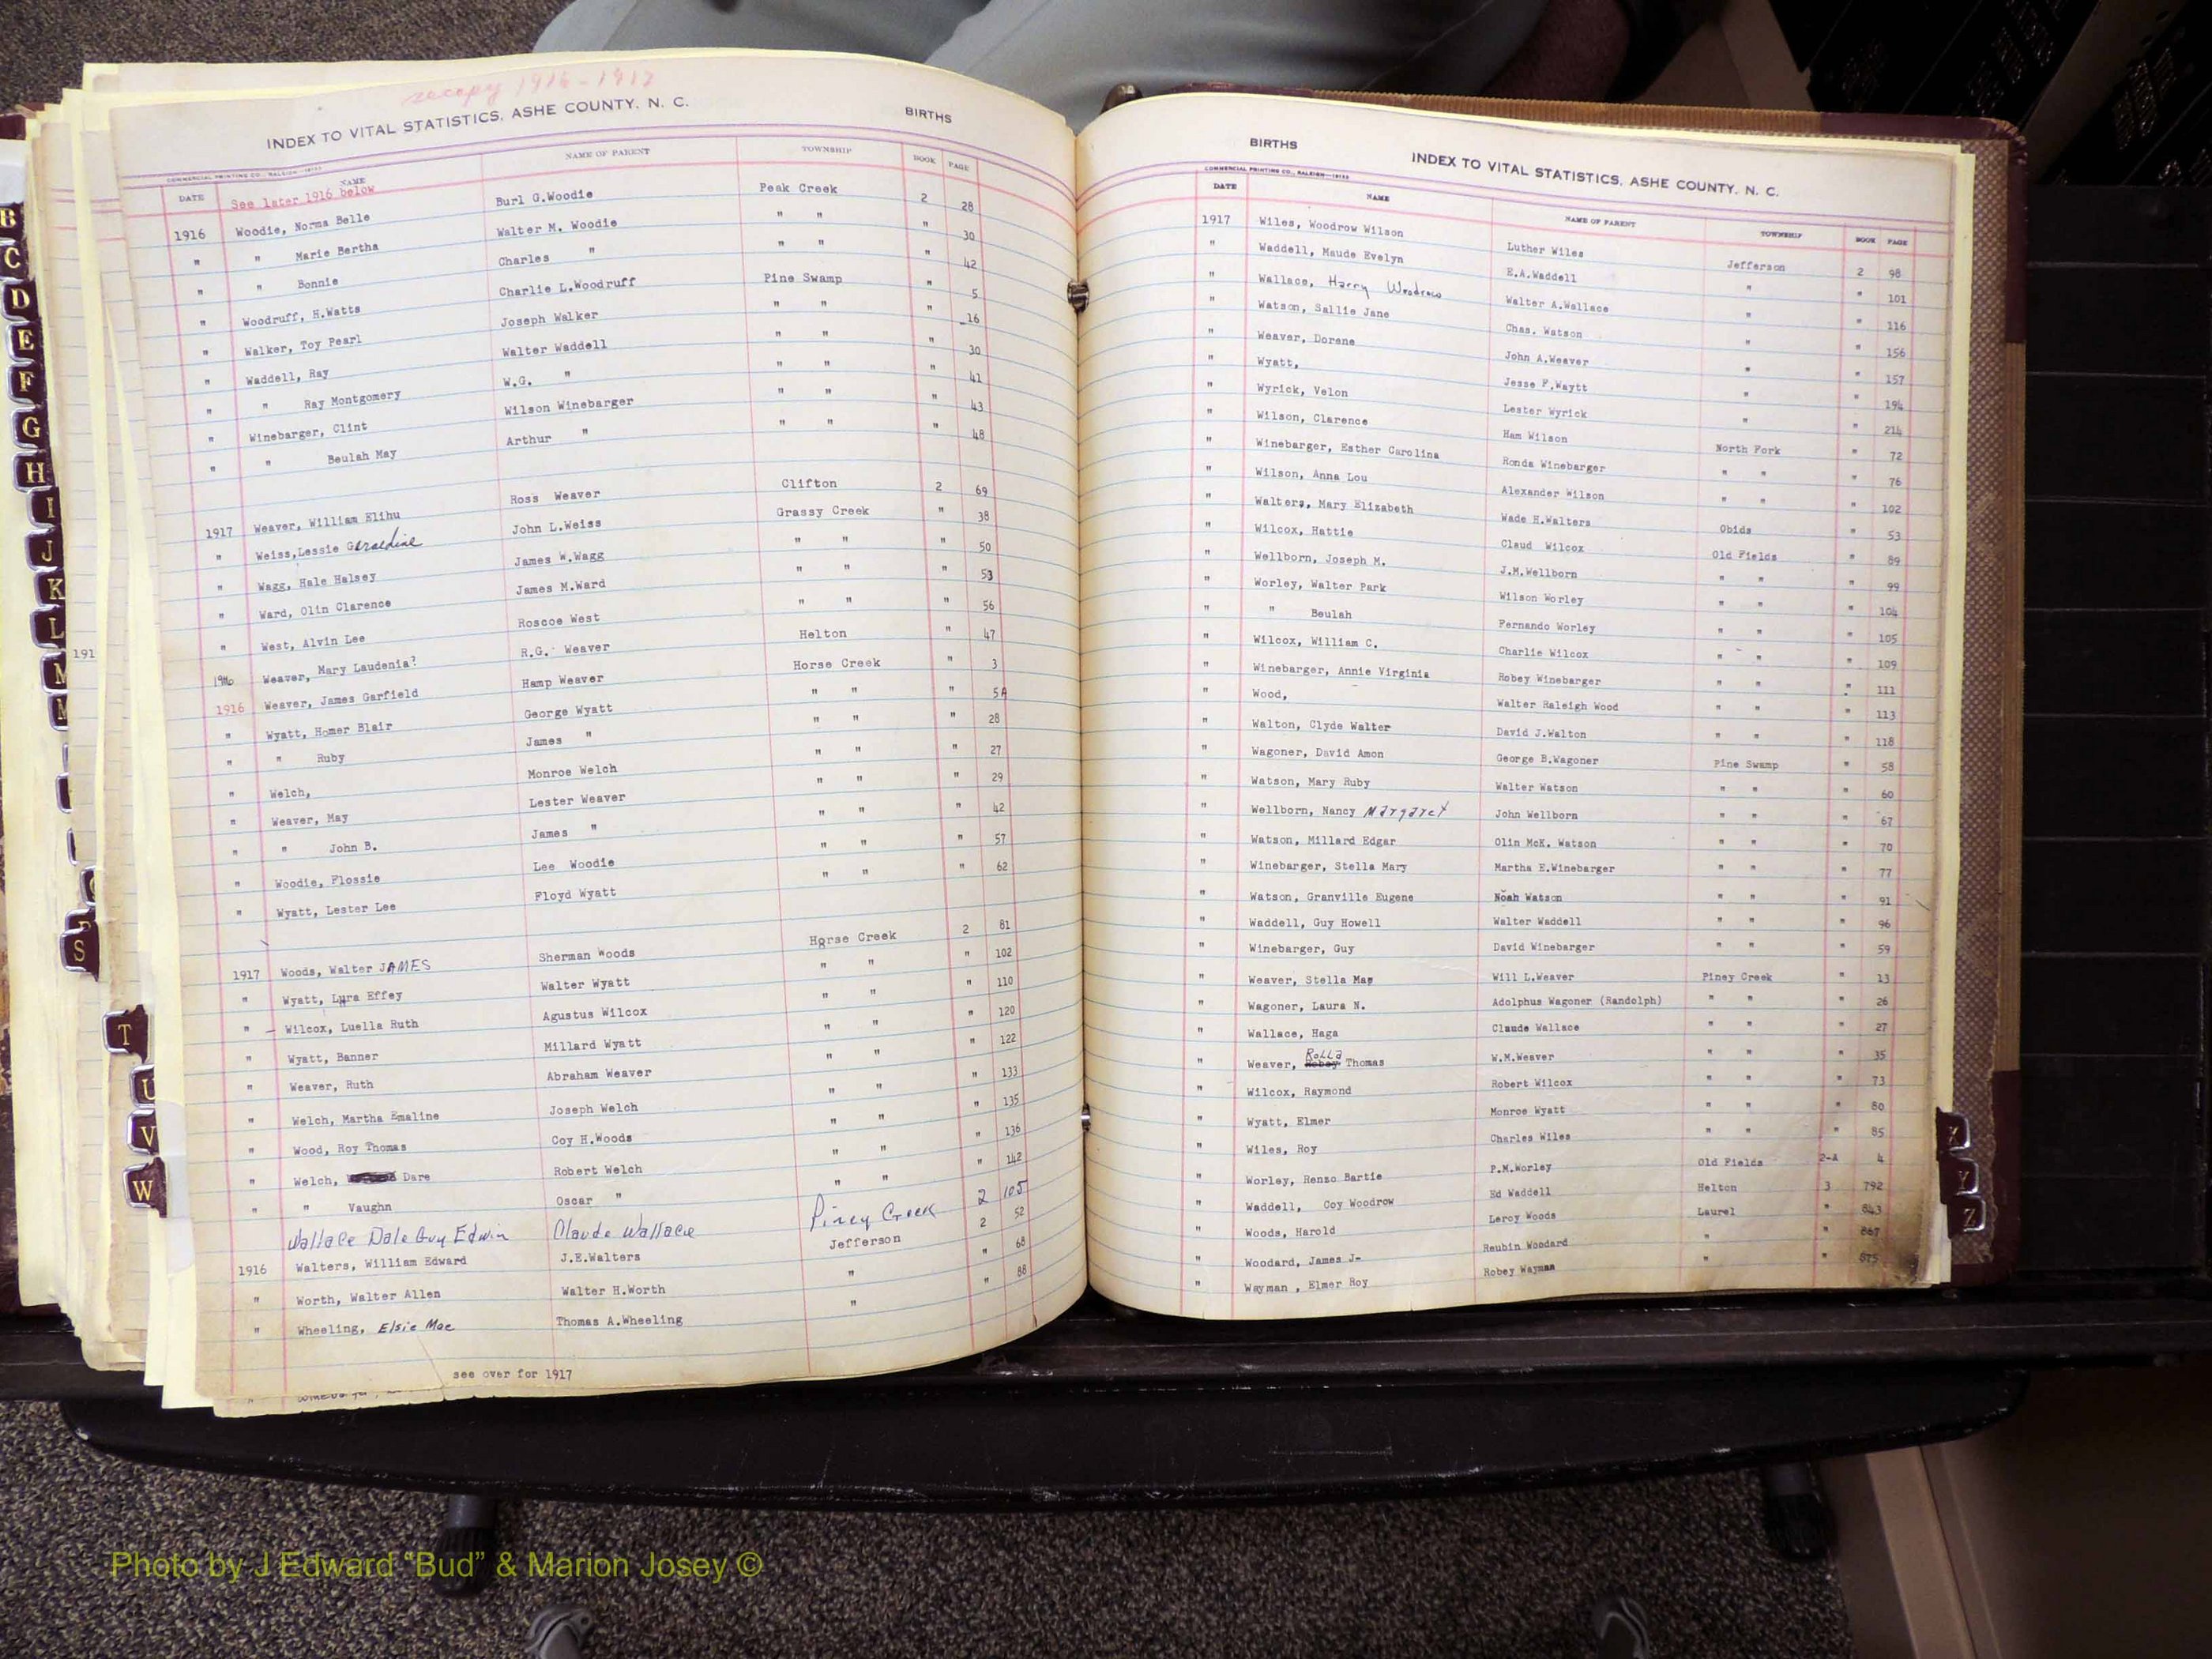 recopy 1916-1917
INDEX TO VITAL STATISTICS, ASHE COUNTY, N. C. BIRTHS
COMMERCIAL PRINTING CO., RALEIGH
DATE NAME NAME OF PARENT TOWNSHIP BOOK PAGE
See later 1916 below
1916 Woodie, Norma Belle Burl G.Woodie Peak Creek 2 28
" " Marie Bertha Walter M. Woodie " " " 30
" " Bonnie Charles " " " " 42
" Woodruff, H.Watts Charlie L.Woodruff Pine Swamp " 5
" Walker, Toy Pearl Joseph Walker " " " 16
" Waddell, Ray Walter Waddell " " " 30
" " Ray Montgomery W.G. " " " " 41
" Winebarger, Clint Wilson Winebarger " " " 43
" " Beulah May Arthur " " " " 48
1917 Weaver, William Elihu Ross Weaver Clifton 2 69
" Weiss,Lessie Geraldine John L.Weiss Grassy Creek " 38
" Wagg, Hale Halsey James W.Wagg " " " 50
" Ward, Olin Clarence James M.Ward " " " 53
" West, Alvin Lee Roscoe West " " " 56
1916 Weaver, Mary Laudenia? R.G. Weaver Helton " 47
1916 Weaver, James Garfield Hamp Weaver Horse Creek " 3
" Wyatt, Homer Blair George Wyatt " " " 5A
" " Ruby James " " " " 28
" Welch, Monroe Welch " " " 27
" Weaver, May Lester Weaver " " " 29
" " John B. James " " " " 42
" Woodie, Flossie Lee Woodie " " " 57
" Wyatt, Lester Lee Floyd Wyatt " " " 62
1917 Woods, Walter JAMES Sherman Woods Horse Creek 2 81
" Wyatt, Lyra Effey Walter Wyatt " " " 102
" Wilcox, Luella Ruth Agustus Wilcox " " " 110
" Wyatt, Banner Millard Wyatt " " " 120
" Weaver, Ruth Abraham Weaver " " " 122
" Welch, Martha Emaline Joseph Welch " " " 133
" Wood, Roy Thomas Coy H.Woods " " " 135
" Welch, Dare Robert Welch " " " 136
" " Vaughn Oscar " " " " 142
Wallace Dale Guy Edwin Claude Wallace Piney Creek 2 105
1916 Walters, William Edward J.E.Walters Jefferson 2 52
" Worth, Walter Allen Walter H.Worth " " 68
" Wheeling, Elsie Mae Thomas A.Wheeling " " 88
see over for 1917
BIRTHS INDEX TO VITAL STATISTICS, ASHE COUNTY, N. C.
COMMERCIAL PRINTING CO., RALEIGH
DATE NAME NAME OF PARENT TOWNSHIP BOOK PAGE
1917 Wiles, Woodrow Wilson Luther Wiles Jefferson 2 98
" Waddell, Maude Evelyn E.A.Waddell " " 101
" Wallace, Harry Woodrow Walter A.Wallace " " 116
" Watson, Sallie Jane Chas. Watson " " 156
" Weaver, Dorene John A.Weaver " " 157
" Wyatt, Jesse F.Waytt " " 194
" Wyrick, Velon Lester Wyrick " " 214
" Wilson, Clarence Ham Wilson North Fork " 72
" Winebarger, Esther Carolina Ronda Winebarger " " " 76
" Wilson, Anna Lou Alexander Wilson " " " 102
" Walters, Mary Elizabeth Wade H.Walters Obids " 53
" Wilcox, Hattie Claud Wilcox Old Fields " 89
" Wellborn, Joseph M. J.M.Wellborn " " " 99
" Worley, Walter Park Wilson Worley " " " 104
" " Beulah Fernando Worley " " " 105
" Wilcox, William C. Charlie Wilcox " " " 109
" Winebarger, Annie Virginia Robey Winebarger " " " 111
" Wood, Walter Raleigh Wood " " " 113
" Walton, Clyde Walter David J.Walton " " " 118
" Wagoner, David Amon George B.Wagoner Pine Swamp " 58
" Watson, Mary Ruby Walter Watson " " " 60
" Wellborn, Nancy Margaret John Wellborn " " " 67
" Watson, Millard Edgar Olin McK. Watson " " " 70
" Winebarger, Stella Mary Martha E.Winebarger " " " 77
" Watson, Granville Eugene Noah Watson " " " 91
" Waddell, Guy Howell Walter Waddell " " " 96
" Winebarger, Guy David Winebarger " " " 59
" Weaver, Stella Mae Will L.Weaver Piney Creek " 13
" Wagoner, Laura N. Adolphus Wagoner (Randolph) " " " 26
" Wallace, Haga Claude Wallace " " " 27
" Weaver, Rolla Thomas W.M.Weaver " " " 35
" Wilcox, Raymond Robert Wilcox " " " 73
" Wyatt, Elmer Monroe Wyatt " " " 80
" Wiles, Roy Charles Wiles " " " 85
" Worley, Renzo Bartie P.M.Worley Old Fields 2-A 4
" Waddell, Coy Woodrow Ed Waddell Helton 3 792
" Woods, Harold Leroy Woods Laurel " 843
" Woodard, James J- Reubin Woodard " " 867
" Wayman , Elmer Roy Robey Wayman " " 875
B
C
D
E
F
G
H
I
J
K
L
M
191
S
T
U
V
W
Y
Z
Photo by J Edward "Bud" & Marion Josey ©